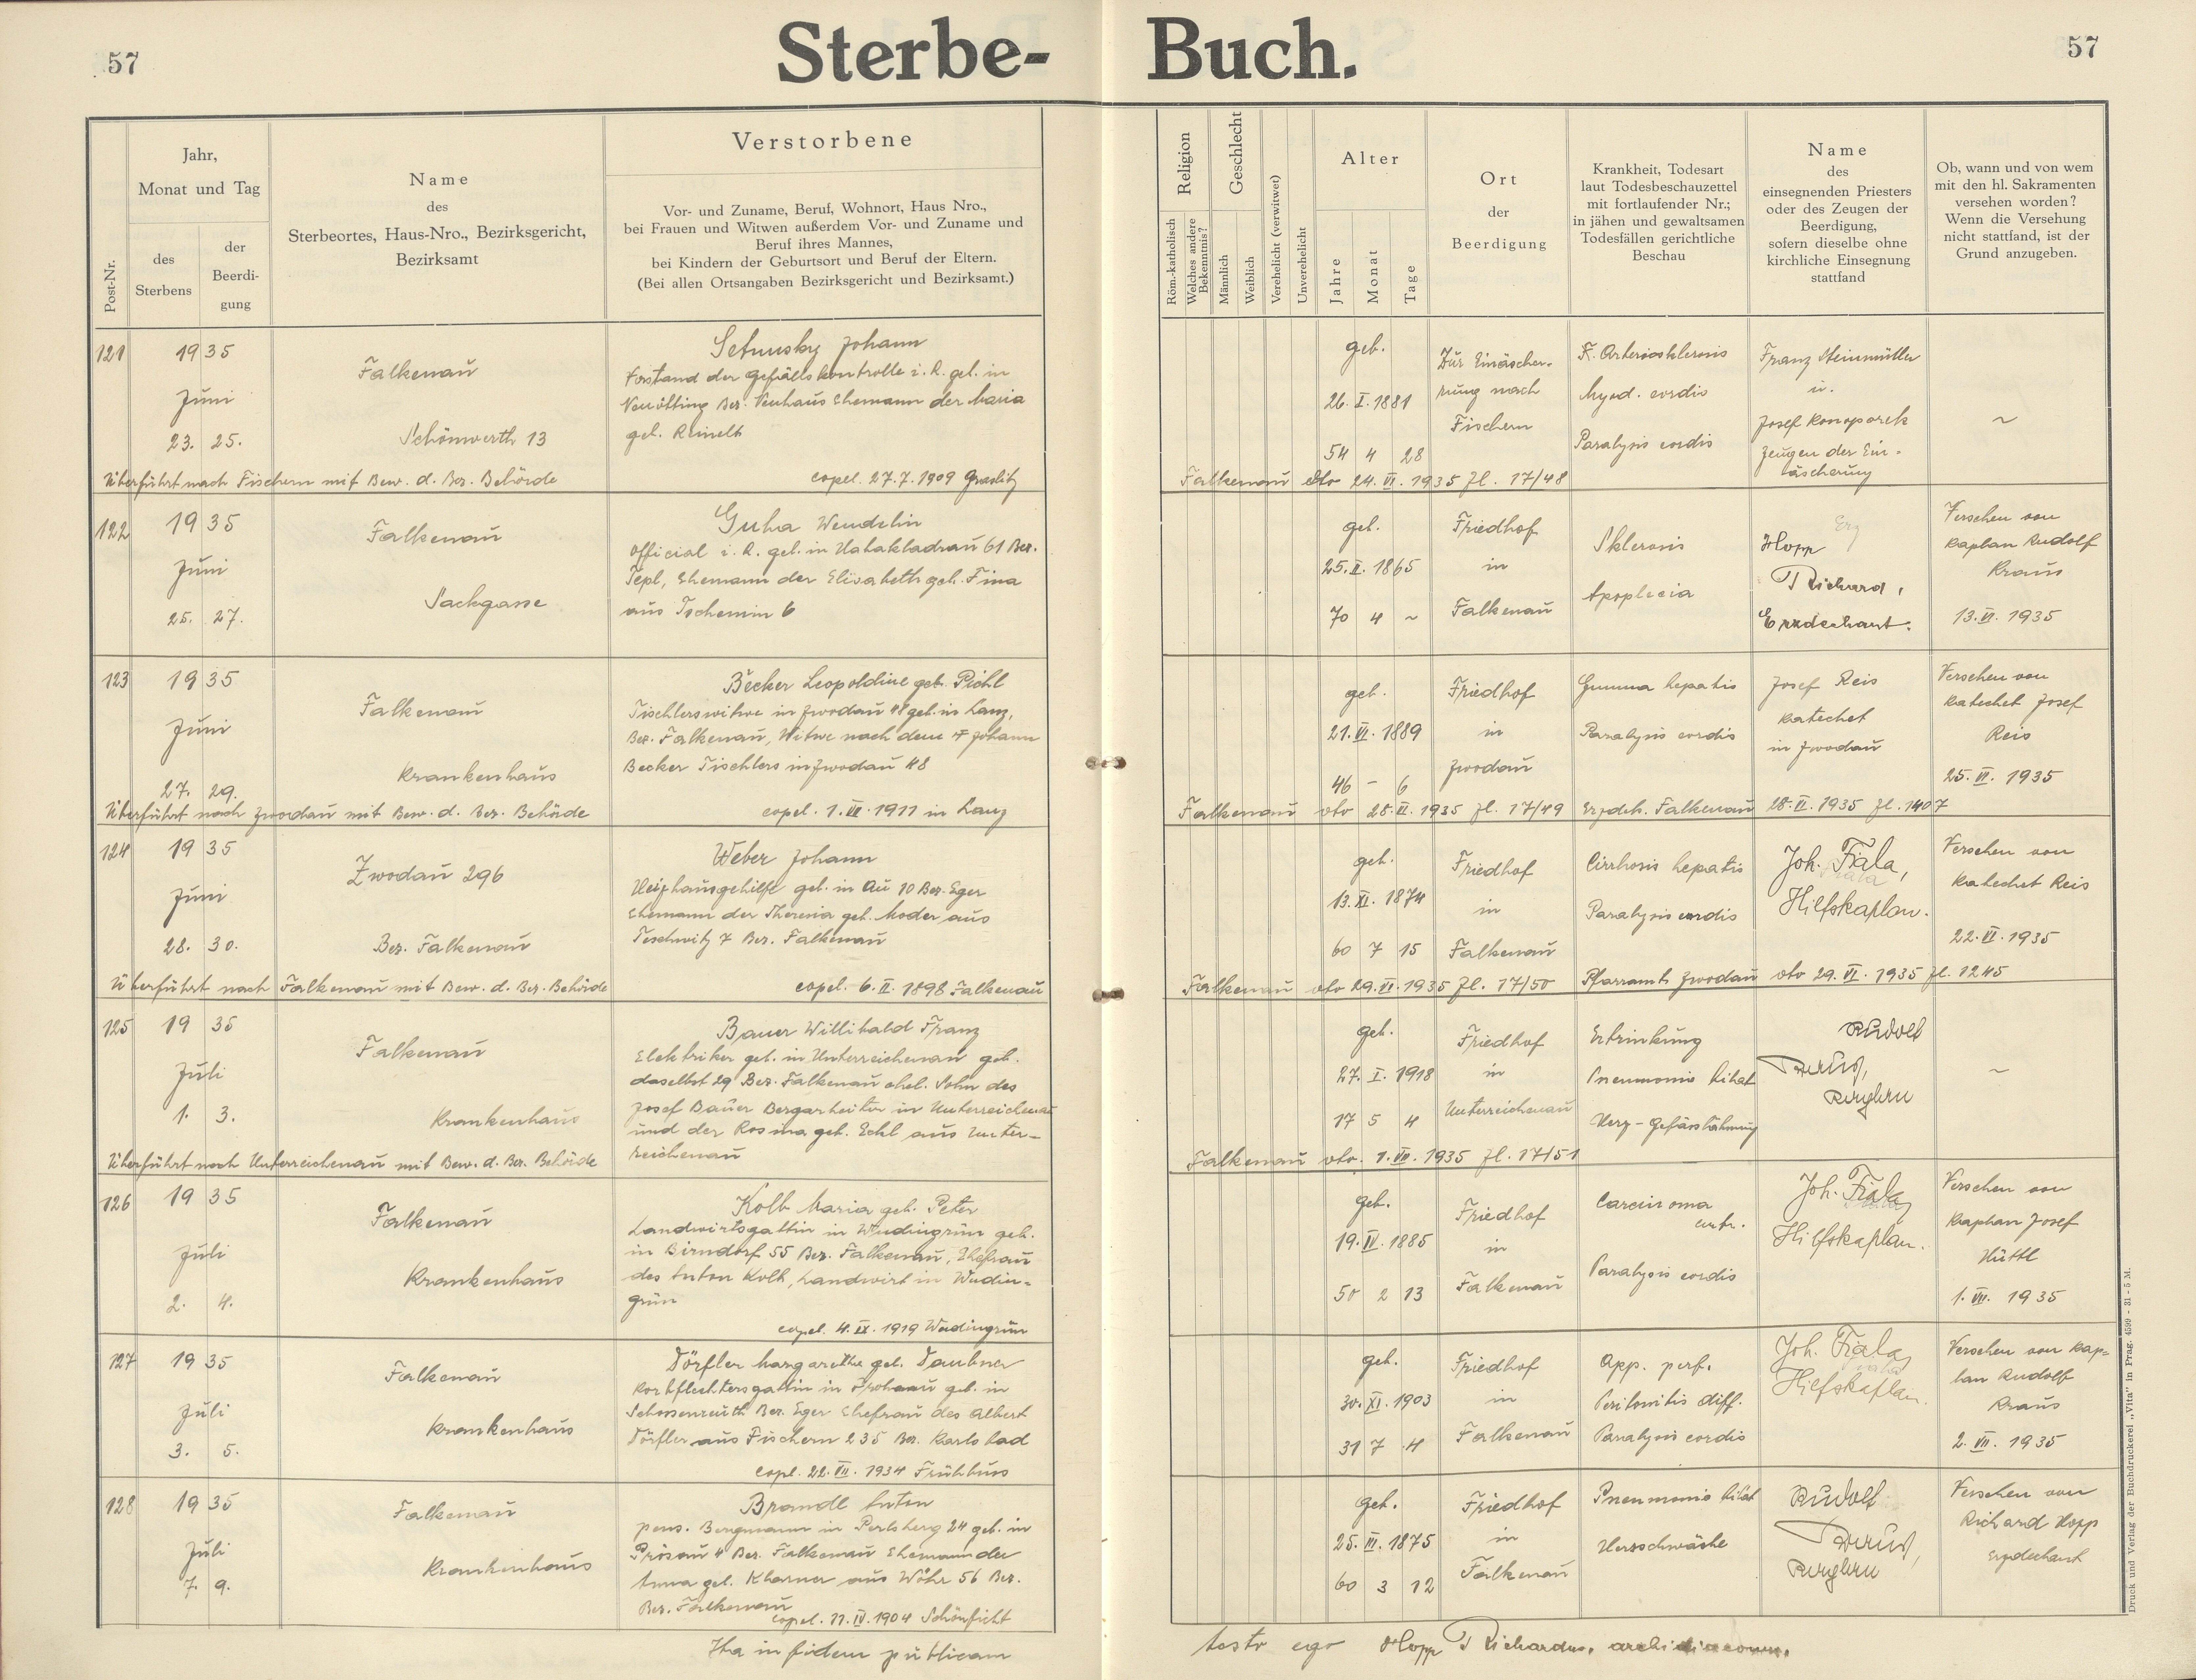 57
Sterbe- Buch.
57
Post-Nr.
Jahr,
Monat und Tag
des
Sterbens
der
Beerdi-
gung
Name
des
Sterbeortes, Haus-Nro., Bezirksgericht,
Bezirksamt
Verstorbene
Vor- und Zuname, Beruf, Wohnort, Haus Nro.,
bei Frauen und Witwen außerdem Vor- und Zuname und
Beruf ihres Mannes,
bei Kindern der Geburtsort und Beruf der Eltern.
(Bei allen Ortsangaben Bezirksgericht und Bezirksamt.)
Religion
Röm.-katholisch
Welches andere
Bekenntnis?
Geschlecht
Männlich
Weiblich
Verehelicht (verwitwet)
Unverehelicht
Alter
Jahre
Monat
Tage
Ort
der
Beerdigung
Krankheit, Todesart
laut Todesbeschauzettel
mit fortlaufender Nr.;
in jähen und gewaltsamen
Todesfällen gerichtliche
Beschau
Name
des
einsegnenden Priesters
oder des Zeugen der
Beerdigung,
sofern dieselbe ohne
kirchliche Einsegnung
stattfand
Ob, wann und von wem
mit den hl. Sakramenten
versehen worden?
Wenn die Versehung
nicht stattfand, ist der
Grund anzugeben.
121
1935
Juni
23. 25.
Falkenau
Schönwerth 13
Johann
Vorstand der Gefällskontrolle i. R. geb. in
Bez. Neuhaus Ehemann der Maria
geb. Reinelt
copel. 27.7.1909 Graslitz
Überführt nach Fischern mit Bew. d. Bez. Behörde
geb.
26. I. 1881
54 4 28
Zur Einäscher-
rung nach
Fischern
Arteriosklerosis
Myod. cordis
Paralysis cordis
Franz Steinmüller
u.
Josef Konoporek
Zeugen der Ein-
äscherung
~
Falkenau dto 24. VI. 1935 Zl. 17/48
122
1935
Juni
25. 27.
Falkenau
Sackgasse
Guha Wendelin
Official i. R. geb. in 61 Bez.
Tepl, Ehemann der Elisabeth geb. Fina
aus Tschemin 6
geb.
25. II. 1865
70 4 ~
Friedhof
in
Falkenau
Sklerosis
Apoplexia
Hopp
Richard,
Erzdechant.
Versehen von
Kaplan Rudolf
Kraus
13. VI. 1935
123
1935
Juni
27. 29.
Falkenau
Krankenhaus
Becker Leopoldine geb. Pichl
Tischlerswitwe in Zwodau 48 geb. in Lanz,
Bez. Falkenau, Witwe nach dem † Johann
Becker Tischlers in Zwodau 48
copel. 1. 1911 in Lanz
Überführt nach Zwodau mit Bew. d. Bez. Behörde
geb.
21. VI. 1889
46 – 6
Friedhof
in
Zwodau
Gumma hepatis
Paralysis cordis
Josef Reis
Katechet
in Zwodau
Versehen von
Katechet Josef
Reis
25. VI. 1935
Falkenau dto 28. VI. 1935 Zl. 17/49 Erzdch. Falkenau 28. VI. 1935 Zl. 1407
124
1935
Juni
28. 30.
Zwodau 296
Bez. Falkenau
Weber Johann
Heizhausgehilfe geb. in Au 10 Bez. Eger
Ehemann der Theresia geb. Moder aus
Teschwitz 7 Bez. Falkenau
copel. 6. II. 1898 Falkenau
Überführt nach Falkenau mit Bew. d. Bez. Behörde
geb.
13. XI. 1874
60 7 15
Friedhof
in
Falkenau
Cirrhosis hepatis
Paralysis cordis
Joh. Fiala,
Hilfskaplan.
Versehen von
Katechet Reis
22. VI. 1935
Falkenau dto 29. VI. 1935 Zl. 17/50 Pfarramt Zwodau dto 29. VI. 1935 Zl. 1245
125
1935
Juli
1. 3.
Falkenau
Krankenhaus
Bauer Willibald Franz
Elektriker geb. in Unterreichenau geb.
daselbst 29 Bez. Falkenau ehel. Sohn des
Josef Bauer Bergarbeiter in Unterreichenau
und der Rosina geb. Eckl aus Unter-
reichenau
Überführt nach Unterreichenau mit Bew. d. Bez. Behörde
geb.
27. I. 1918
17 5 4
Friedhof
in
Unterreichenau
Ertrinkung
Pneumonie bilat
Herz-Gefässlähmung
Rudolf
Kraus,
Kaplan
~
Falkenau dto. 1. VII. 1935 Zl. 17/51
126
1935
Juli
2. 4.
Falkenau
Krankenhaus
Kolb Maria geb. Peter
Landwirtsgattin in Wudingrün geb.
in Birndorf 55 Bez. Falkenau, Ehefrau
des Anton Kolb, Landwirt in Wudin-
grün
copel. 4. IX. 1919 Wudingrün
geb.
19. IV. 1885
50 2 13
Friedhof
in
Falkenau
Carcinoma
Paralysis cordis
Joh. Fiala,
Hilfskaplan.
Versehen von
Kaplan Josef
Hüttl
1. VII. 1935
127
1935
Juli
3. 5.
Falkenau
Krankenhaus
Dörfler Margarethe geb. Daubner
Korbflechtersgattin in Frohnau geb. in
Schossenreuth Bez. Eger Ehefrau des Albert
Dörfler aus Fischern 235 Bez. Karlsbad
copl. 22. VII. 1934 Frühbuss
geb.
30. XI. 1903
31 7 4
Friedhof
in
Falkenau
App. perf.
Peritonitis diff.
Paralysis cordis
Joh. Fiala,
Hilfskaplan.
Versehen von Kap-
lan Rudolf
Kraus
2. VII. 1935
128
1935
Juli
7. 9.
Falkenau
Krankenhaus
Brandl Anton
pens. Bergmann in Perlsberg 24 geb. in
Prösau 4 Bez. Falkenau Ehemann der
Anna geb. aus Wöhr 56 Bez.
Bez. Falkenau
copel. 11. IV. 1904 Schönficht
geb.
25. III. 1875
60 3 12
Friedhof
in
Falkenau
Pneumonie bilat
Herzschwäche
Rudolf
Kraus,
Kaplan
Versehen von
Richard Hopp
Erzdechant
Ita in fidem publicam
testor ego Hopp Richardus, archidiaconus.
Druck und Verlag der Buchdruckerei „Vita“ in Prag. 4599 - 31 - 5 M.